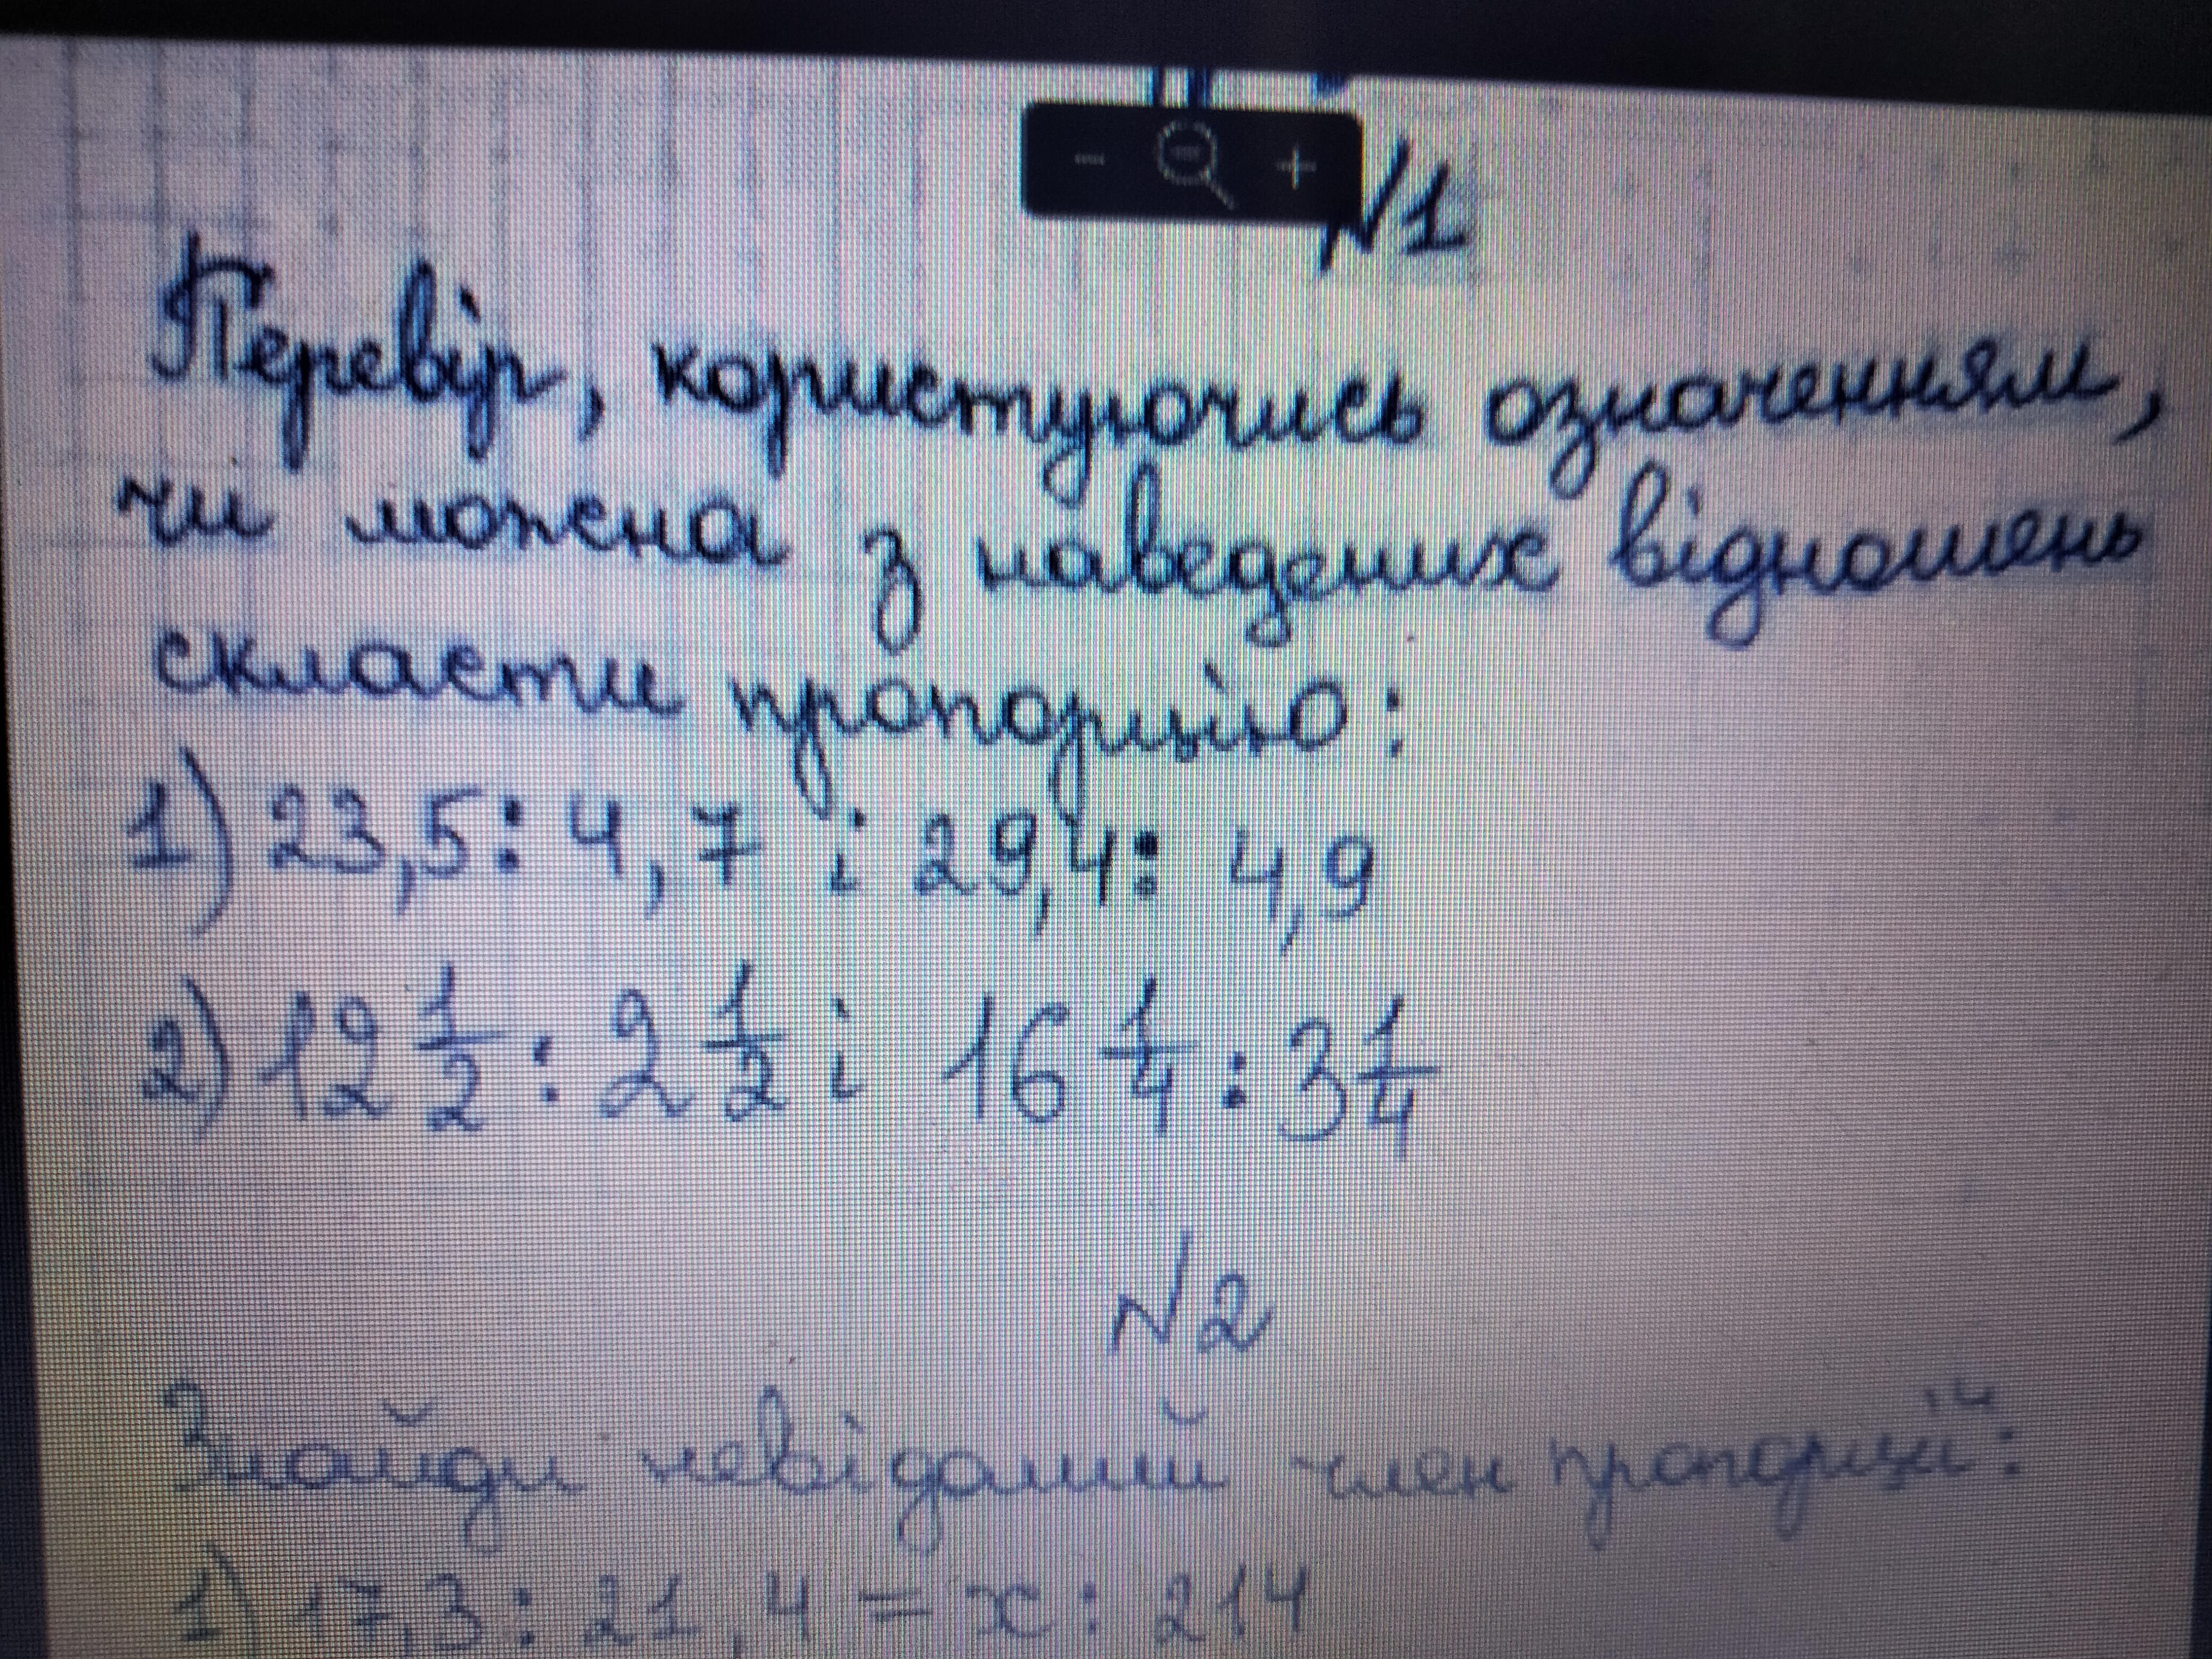 N1
Перевір, користуючись означенням,
чи можна з наведених відношень
скласти пропорцію:
1) 23,5 : 4,7 і 29,4 : 4,9
2) 12 1/2 : 2 1/2 і 16 1/4 : 3 1/4
N2
Знайди невідомий член пропорції:
1) 17,3 : 21,4 = x : 214